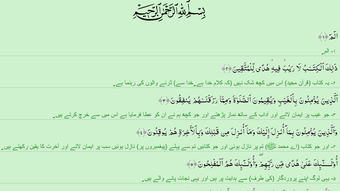 بِسْمِ ٱللَّهِ ٱلرَّحْمَٰنِ ٱلرَّحِيمِ
الٓمٓ ﴿١﴾
۱- الم۔
ذَٰلِكَ الْكِتَـٰبُ لَا رَيْبَ فِيهِ هُدًى لِّلْمُتَّقِينَ ﴿٢﴾
۲- یہ کتاب (قرآن مجید) اس میں کچھ شک نہیں (کہ کلام خدا ہے۔ خدا سے) ڈرنے والوں کی رہنما ہے۔
الَّذِينَ يُؤْمِنُونَ بِالْغَيْبِ وَيُقِيمُونَ الصَّلَوٰةَ وَمِمَّا رَزَقْنَـٰهُمْ يُنفِقُونَ ﴿٣﴾
۳- جو غیب پر ایمان لاتے اور آداب کے ساتھ نماز پڑھتے اور جو کچھ ہم نے ان کو عطا فرمایا ہے اس میں سے خرچ کرتے ہیں۔
وَالَّذِينَ يُؤْمِنُونَ بِمَا أُنزِلَ إِلَيْكَ وَمَا أُنزِلَ مِن قَبْلِكَ وَبِالْآخِرَةِ هُمْ يُوقِنُونَ ﴿٤﴾
۴- اور جو کتاب (اے محمد ﷺ) تم پر نازل ہوئی اور جو کتابیں تم سے پہلے (پیغمبروں پر) نازل ہوئیں سب پر ایمان لاتے اور آخرت کا یقین رکھتے ہیں۔
أُولَـٰئِكَ عَلَىٰ هُدًى مِّن رَّبِّهِمْ وَأُولَـٰئِكَ هُمُ الْمُفْلِحُونَ ﴿٥﴾
۵- یہی لوگ اپنے پروردگار (کی طرف) سے ہدایت پر ہیں اور یہی نجات پانے والے ہیں۔